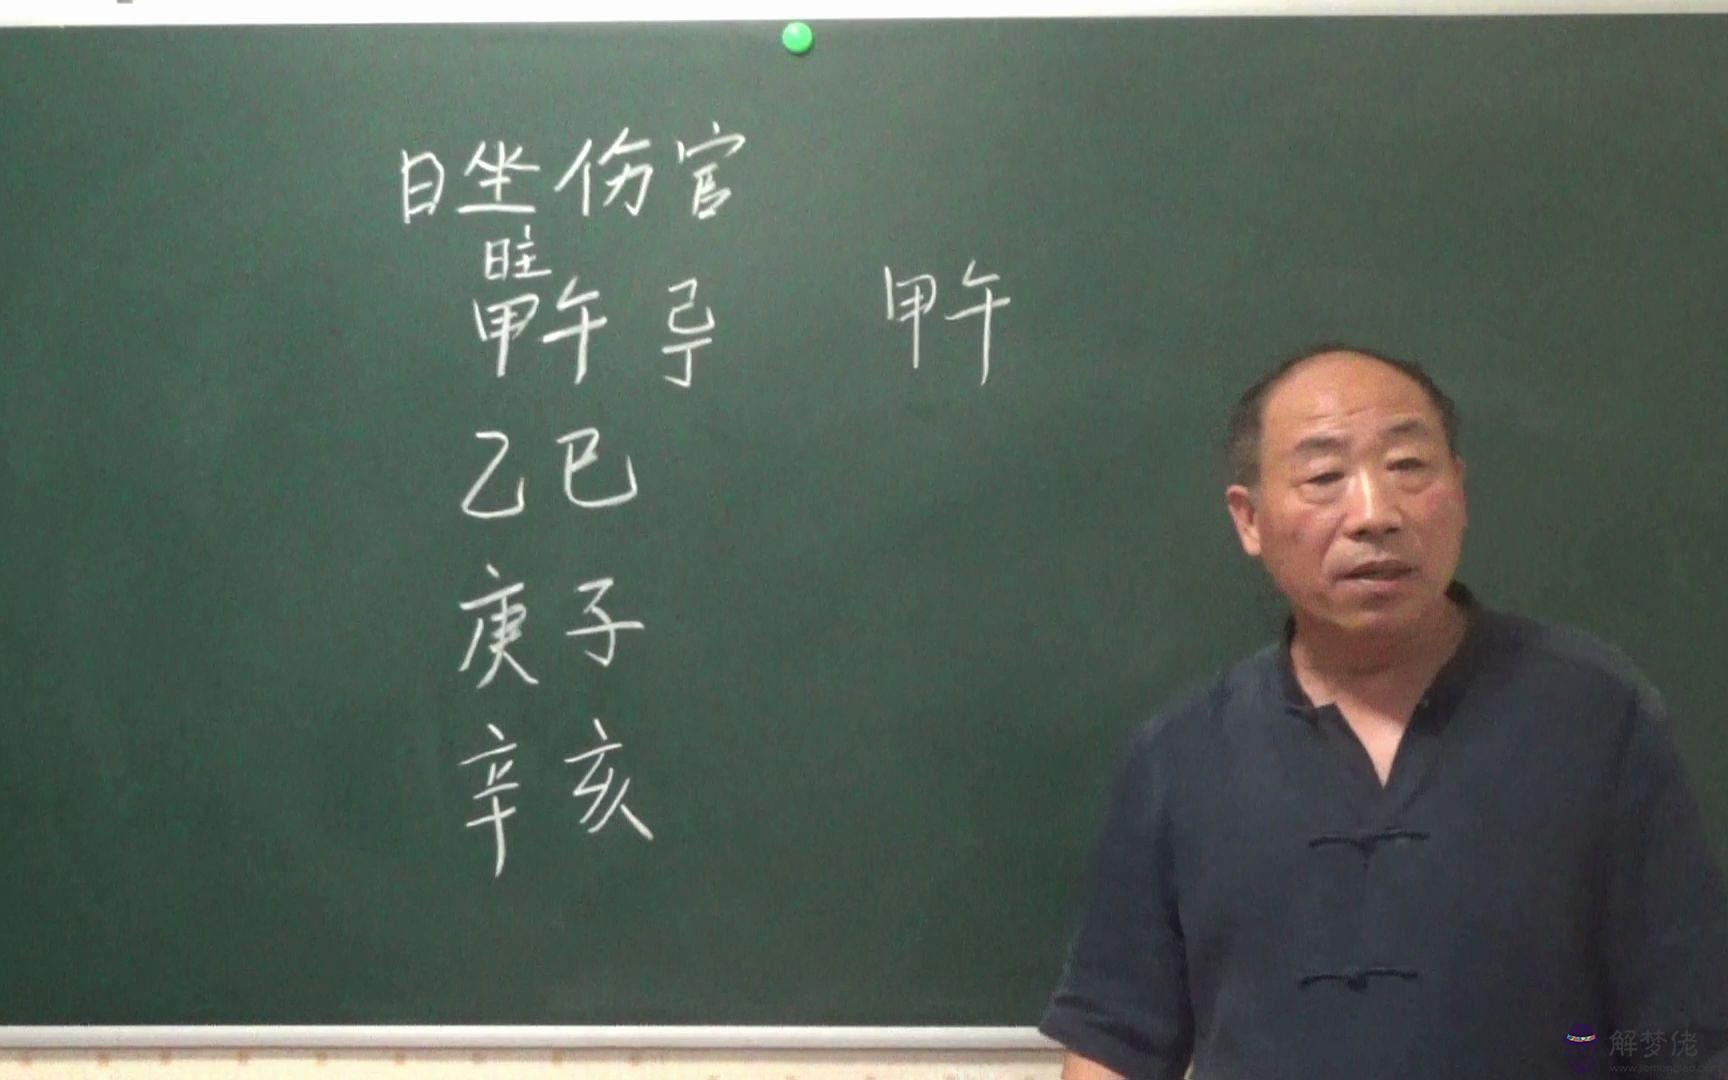 日坐伤官
日主
甲午 己丁 甲午
乙巳
庚子
辛亥
解梦佬